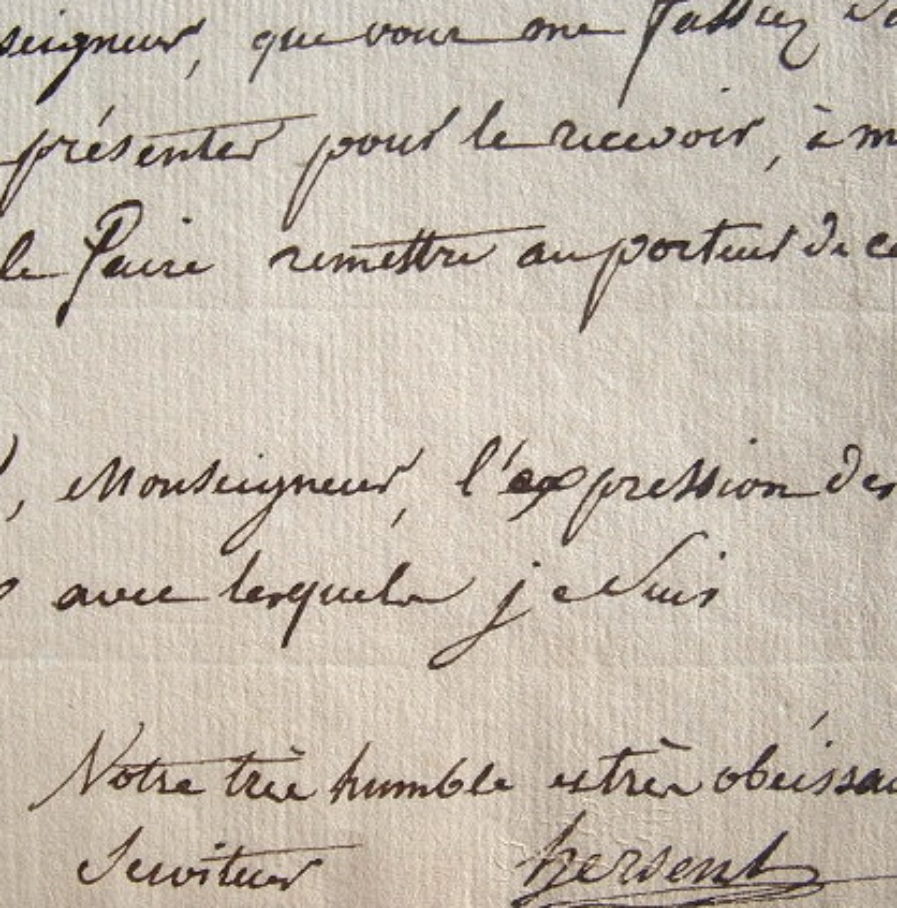 seigneur, que vous me fassiez
présenter pour le recevoir, à m
le faire remettre au porteur de ce
, Monseigneur, l'expression des
avec lesquels je suis
Votre très humble et très obéissan
Serviteur Hersent